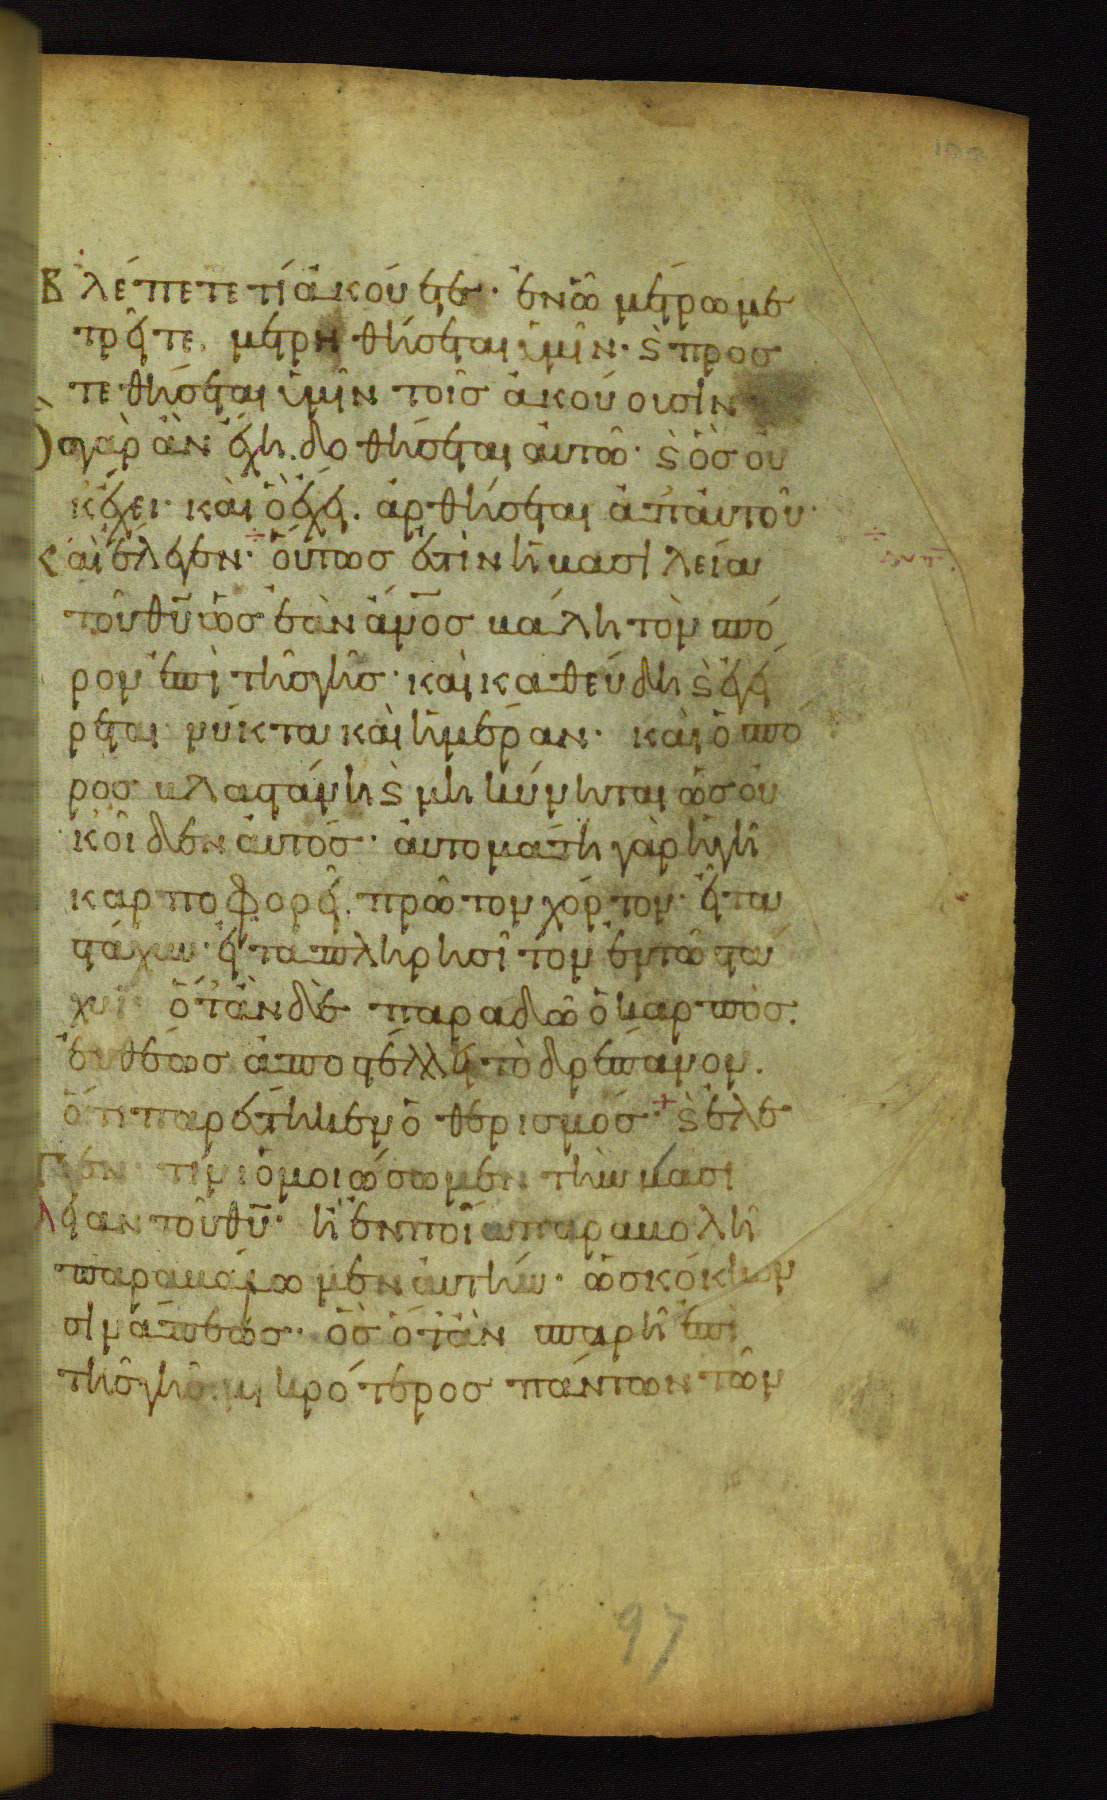 100
Βλέπετε τί ἀκούετε· ἐν ὧ μέτρω με
τρεῖτε, μετρηθήσεται ὑμῖν· ϗ προσ
τεθήσεται ὑμῖν τοῖσ ἀκούουσιν·
ὃσ γὰρ ἂν ἔχη, δοθήσεται αὐτῶ· ϗ ὃσ οὐ
κ ἔχει· καὶ ὃ ἔχει. ἀρθήσεται ἀπ αὐτοῦ·
Καὶ ἔλεγεν· οὕτωσ ἐστὶν ἡ βασιλεία
τοῦ θυ ὡσ ἐὰν ἄνοσ βάλη τὸν σπό
ρον ἐπὶ τῆσ γῆσ· καὶ καθεύδη ϗ ἐγεί
ρεται νύκτα καὶ ἡμέραν· καὶ ὁ σπό
ροσ βλαστάνη ϗ μηκύνηται ὡσ οὐ
κ οἶδεν αὐτόσ· αὐτομάτη γὰρ ἡ γῆ
καρποφορεῖ. πρῶτον χόρτον· εἶτα
στάχυν· εἶτα πλήρη σῖτον ἐν τῶ στά
χυϊ· ὅταν δὲ παραδῶ ὁ καρπόσ.
εὐθέωσ ἀποστέλλει τὸ δρέπανον.
ὅτι παρέστηκεν ὁ θερισμόσ· ϗ ἔλε
γεν· τίνι ὁμοιώσωμεν τὴν βασι
λείαν τοῦ θυ· ἢ ἐν ποία παραβολῆ
παραβάλωμεν αὐτήν· ὡσ κόκκον
σινάπεωσ· ὃσ ὅταν σπαρῆ ἐπὶ
τῆσ γῆσ. μικρότεροσ πάντων τῶν
97